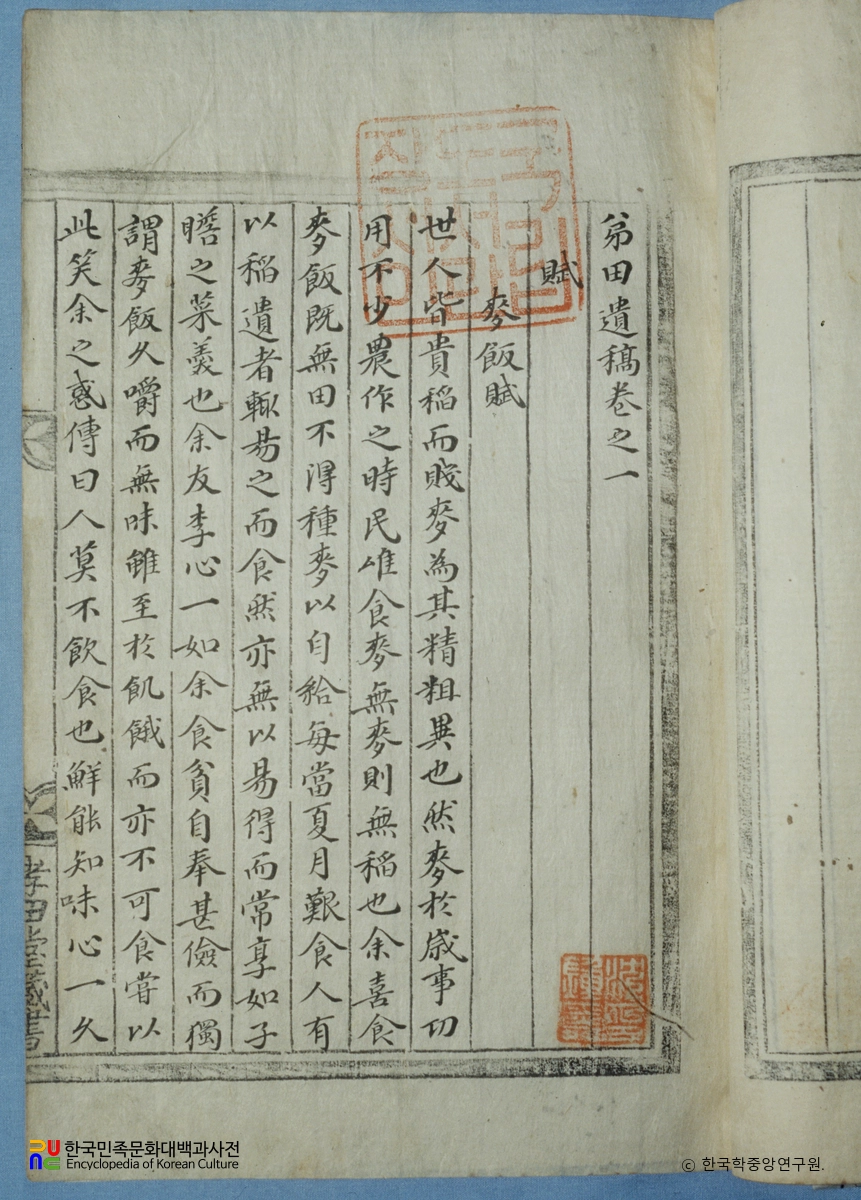 弟田遺稿卷之一
賦
麥飯賦
世人皆貴稻而賤麥為其精粗異也然麥於歲事功
用不少農作之時民唯食麥無麥則無稻也余喜食
麥飯既無田不得種麥以自給每當夏月艱食人有
以稻遺者輒易之而食然亦無以易得而常享如子
瞻之菜羹也余友李心一如余食貧自奉甚儉而獨
謂麥飯久嚼而無味雖至於飢餓而亦不可食嘗以
此笑余之惑傳曰人莫不飮食也鮮能知味心一久
孝田堂藏書
국립
중앙도서관
장서인
한국민족문화대백과사전
Encyclopedia of Korean Culture
ⓒ 한국학중앙연구원.